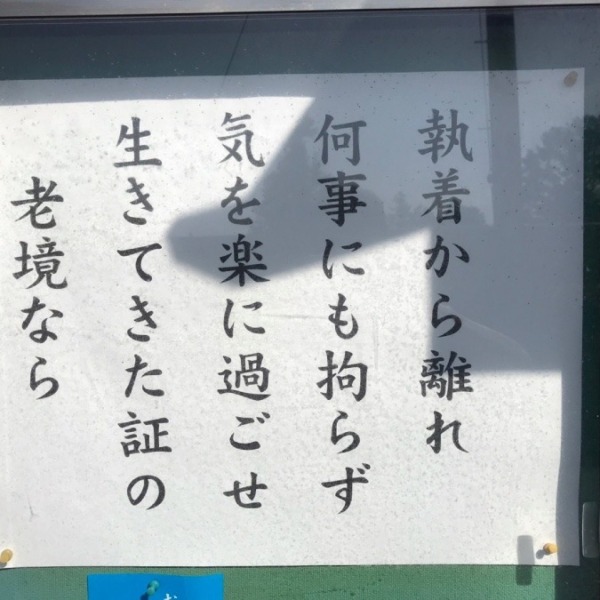 執着から離れ
何事にも拘らず
気を楽に過ごせ
生きてきた証の
老境なら